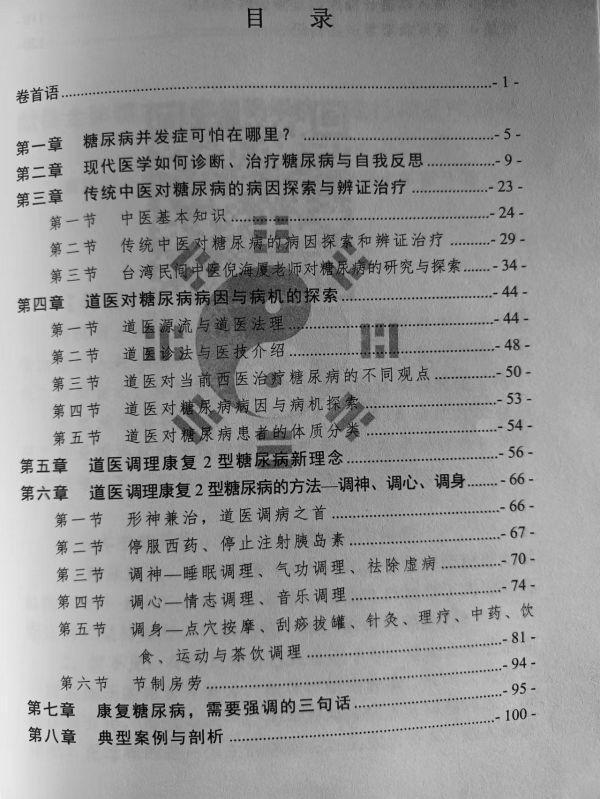 目 录
卷首语 - 1 -
第一章 糖尿病并发症可怕在哪里？ - 5 -
第二章 现代医学如何诊断、治疗糖尿病与自我反思 - 9 -
第三章 传统中医对糖尿病的病因探索与辨证治疗 - 23 -
第一节 中医基本知识 - 24 -
第二节 传统中医对糖尿病的病因探索和辨证治疗 - 29 -
第三节 台湾民间中医倪海厦老师对糖尿病的研究与探索 - 34 -
第四章 道医对糖尿病病因与病机的探索 - 44 -
第一节 道医源流与道医法理 - 44 -
第二节 道医诊法与医技介绍 - 48 -
第三节 道医对当前西医治疗糖尿病的不同观点 - 50 -
第四节 道医对糖尿病病因与病机探索 - 53 -
第五节 道医对糖尿病患者的体质分类 - 54 -
第五章 道医调理康复2型糖尿病新理念 - 56 -
第六章 道医调理康复2型糖尿病的方法—调神、调心、调身 - 66 -
第一节 形神兼治，道医调病之首 - 66 -
第二节 停服西药、停止注射胰岛素 - 67 -
第三节 调神—睡眠调理、气功调理、祛除虚病 - 70 -
第四节 调心—情志调理、音乐调理 - 74 -
第五节 调身—点穴按摩、刮痧拔罐、针灸、理疗、中药、饮
食、运动与茶饮调理 - 81 -
第六节 节制房劳 - 94 -
第七章 康复糖尿病，需要强调的三句话 - 95 -
第八章 典型案例与剖析 - 100 -